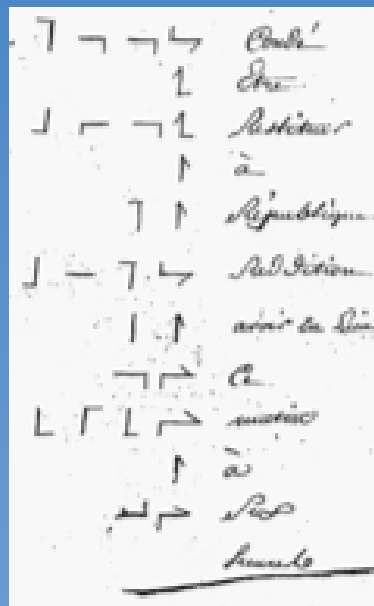 Condé
être
Restituer
à
République
Reddition
avoir eu lieu
Ce
matin
à
Six
heures